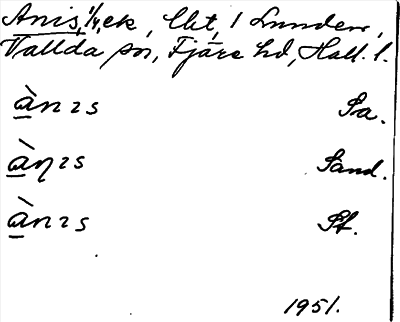 Anis, 1/4, ek, Ukt, 1 Lunden,
Vallda sn, Fjäre hd, Hall. l.
ànıs Sa.
àn̦ıs Sand.
ànıs St.
1951.